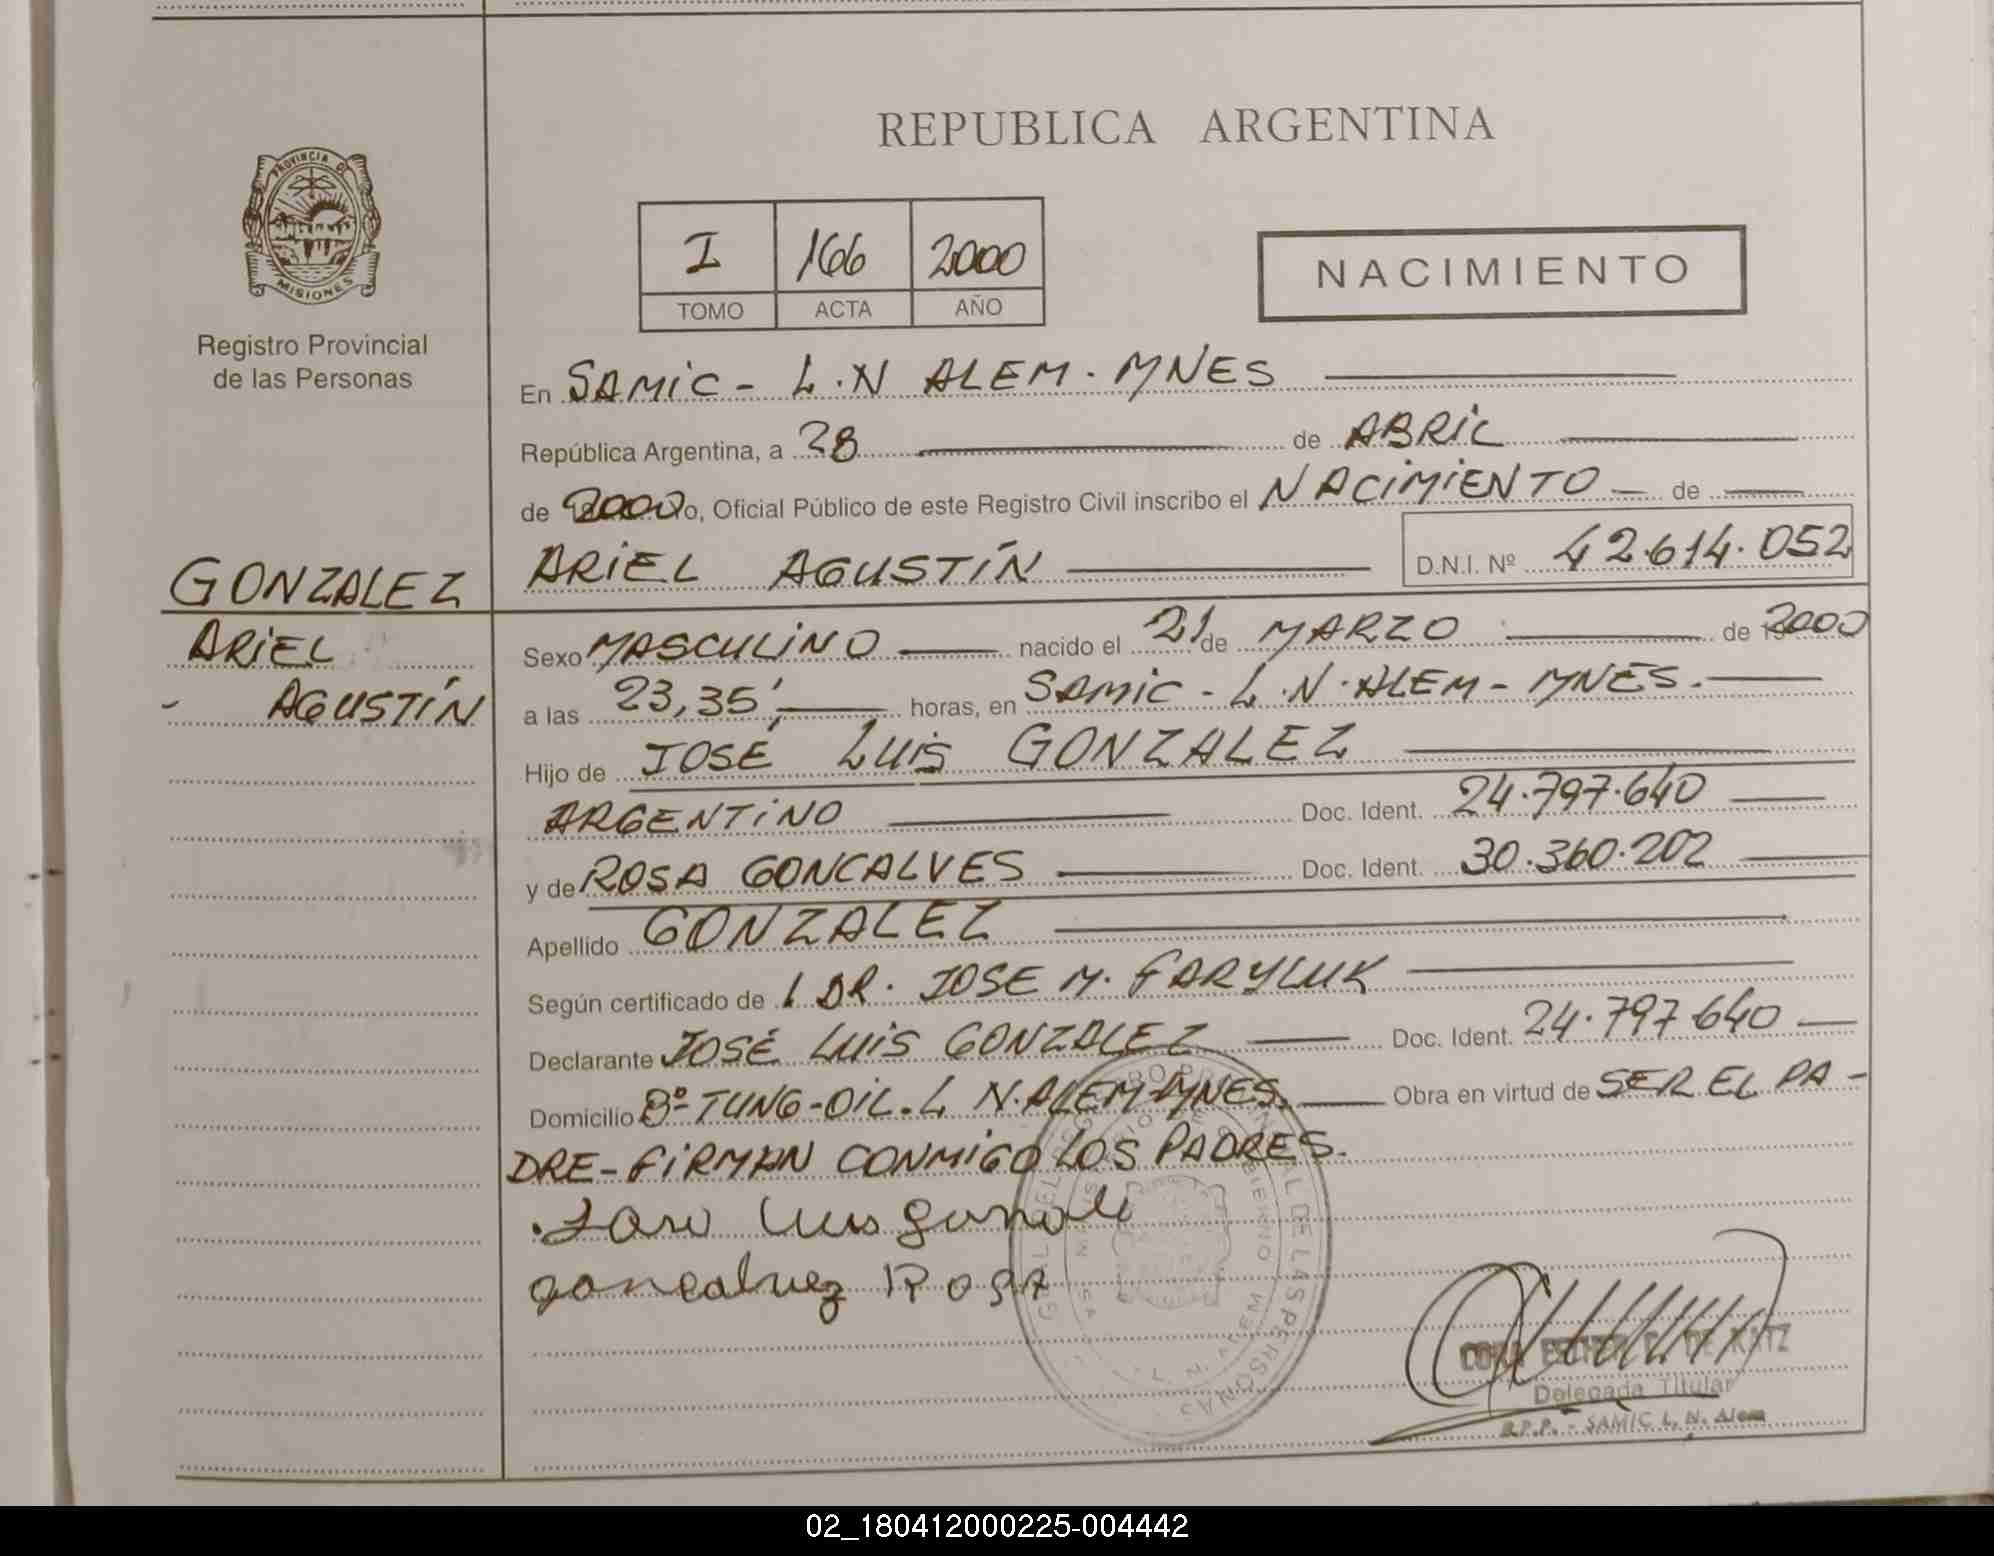 REPUBLICA ARGENTINA
PROVINCIA DE
MISIONES
Registro Provincial
de las Personas
I 166 2000
TOMO ACTA AÑO
NACIMIENTO
En SAMIC - L.N ALEM - MNES
República Argentina, a 28 de ABRIL
de 2000 Yo, Oficial Público de este Registro Civil inscribo el NACIMIENTO de
GONZALEZ
ARIEL
AGUSTÍN
ARIEL AGUSTÍN D.N.I. Nº 42.614.052
Sexo MASCULINO nacido el 21 de MARZO de 2000
a las 23,35' horas, en SAMIC - L.N. ALEM - MNES.
Hijo de JOSÉ LUIS GONZALEZ
ARGENTINO Doc. Ident. 24.797.640
y de ROSA GONCALVES Doc. Ident. 30.360.202
Apellido GONZALEZ
Según certificado de 1 DR. JOSE M. FARYLUK
Declarante JOSÉ LUIS GONZALEZ Doc. Ident. 24.797.640
Domicilio Bº TUNG-OIL. L N. ALEM-MNES. Obra en virtud de SER EL PA-
DRE - FIRMAN CONMIGO LOS PADRES.
Luis
goncalvez Rosa
DE KATZ
Delegada Titular
R.P.P. - SAMIC L. N. Alem
02_180412000225-004442